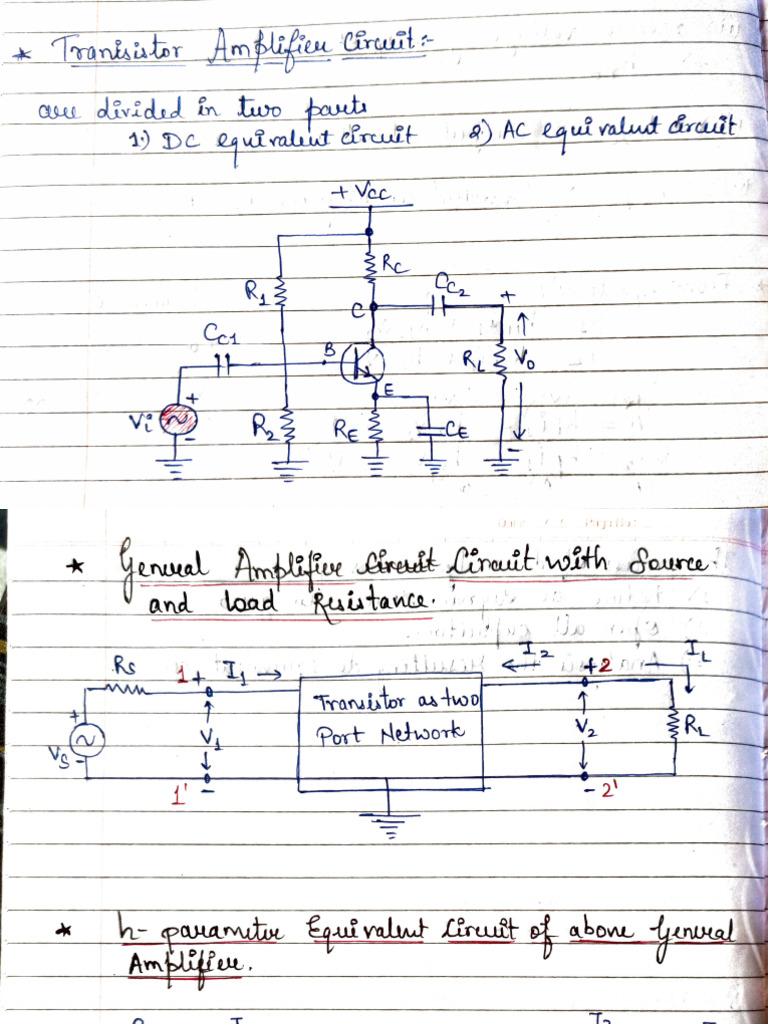 * Tranisistor Amplifier Circuit:-
are divided in two parts
1.) DC equivalent circuit 2) AC equivalent circuit
+ Vcc
RC
R1
CC2
+
C
CC1
B
RL
V0
E
+
Vi
-
R2
RE
CE
-
* General Amplifier Circuit with Source
and load Resistance.
RS
1+
I1 →
I2
+2
IL
+
VS
-
V1
Transistor as two
Port Network
V2
RL
1'
-
- 2'
* h- parameter Equivalent Circuit of above General
Amplifier.
I2